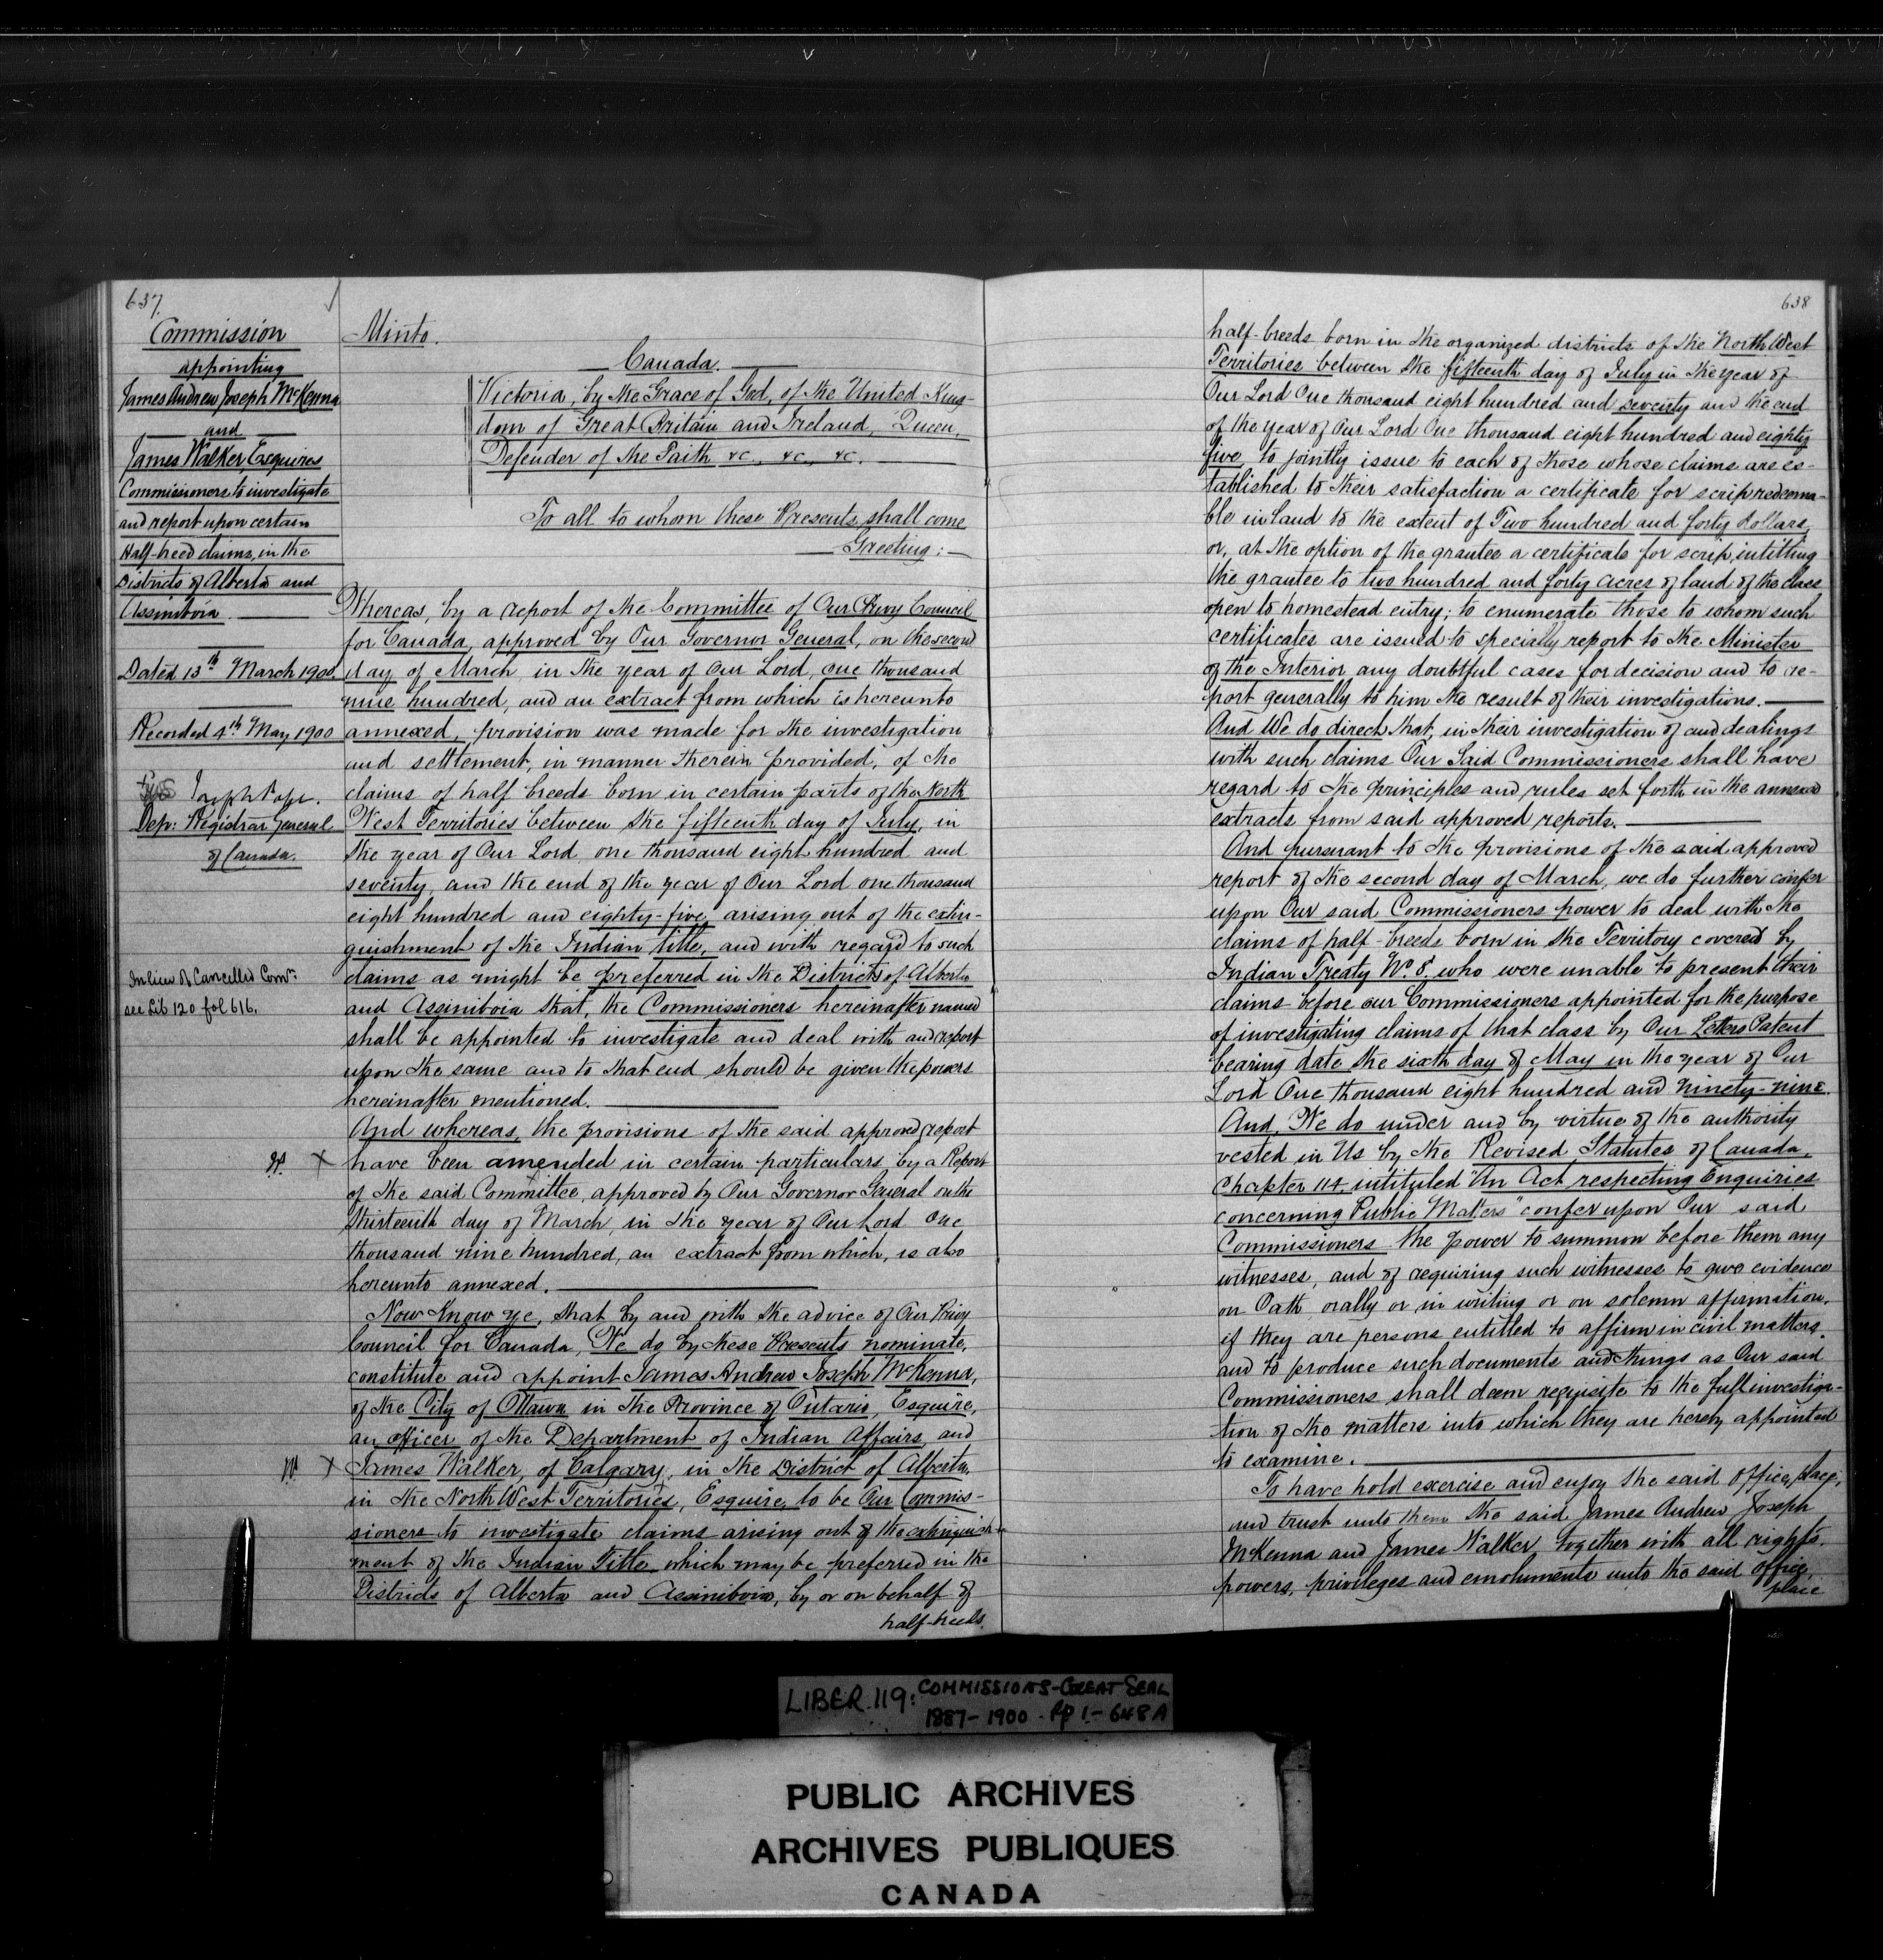 637.
Commission
appointing
James Andrew Joseph McKenna
and
James Walker Esquires
Commissioners to investigate
and report upon certain
Half-breed claims, in the
Districts of Alberta and
Assiniboia.
Dated 13th March 1900.
Recorded 4th May 1900
Joseph Pope.
Dep: Registrar General
of Canada.
In lieu of Cancelled Comn:
see Lib 120 fol 616.
Minto.
Canada.
Victoria, by the Grace of God, of the United King-
dom of Great Britain and Ireland, Queen,
Defender of the Faith &c., &c., &c.
To all to whom these Presents shall come
Greeting:
Whereas, by a report of the Committee of Our Privy Council
for Canada, approved by Our Governor General, on the second
day of March in the year of Our Lord, one thousand
nine hundred, and an extract from which is hereunto
annexed, provision was made for the investigation
and settlement, in manner therein provided, of the
claims of half breeds born in certain parts of the North
West Territories between the fifteenth day of July, in
the year of Our Lord, one thousand eight hundred and
seventy, and the end of the year of Our Lord one thousand
eight hundred and eighty-five, arising out of the extin-
guishment of the Indian title, and with regard to such
claims as might be preferred in the Districts of Alberta
and Assiniboia that, the Commissioners hereinafter named
shall be appointed to investigate and deal with and report
upon the same and to that end should be given the powers
hereinafter mentioned.
And whereas, the provisions of the said approved report
have been amended in certain particulars by a Report
of the said Committee, approved by Our Governor General on the
thirteenth day of March, in the year of Our Lord One
thousand nine hundred, an extract from which, is also
hereunto annexed.
Now Know ye, that by and with the advice of Our Privy
Council for Canada, We do by these Presents nominate,
constitute and appoint James Andrew Joseph McKenna,
of the City of Ottawa in the Province of Ontario, Esquire,
an officer of the Department of Indian Affairs, and
James Walker, of Calgary, in the District of Alberta,
in the North West Territories, Esquire, to be Our Commis-
sioners to investigate claims arising out of the extinguish-
ment of the Indian Title which may be preferred in the
Districts of Alberta and Assiniboia, by or on behalf of
half-breeds.
638
half-breeds born in the organized districts of the North West
Territories between the fifteenth day of July in the year of
Our Lord One thousand eight hundred and seventy and the end
of the year of Our Lord One thousand eight hundred and eighty
five to jointly issue to each of those whose claims are es-
tablished to their satisfaction a certificate for scrip redeema-
ble in land to the extent of Two hundred and forty dollars,
or, at the option of the grantee a certificate for scrip, intitling
the grantee to two hundred and forty acres of land of the class
open to homestead entry; to enumerate those to whom such
certificates are issued to specially report to the Minister
of the Interior any doubtful cases for decision and to re-
port generally to him the result of their investigations.
And We do direct that, in their investigation of and dealings
with such claims Our Said Commissioners shall have
regard to the principles and rules set forth in the annexed
extracts from said approved reports.
And pursuant to the provisions of the said approved
report of the second day of March, we do further confer
upon Our said Commissioners power to deal with the
claims of half-breeds born in the Territory covered by
Indian Treaty No. 8. who were unable to present their
claims before our Commissioners appointed for the purpose
of investigating claims of that class by Our Letters Patent
bearing date the sixth day of May in the year of Our
Lord One thousand eight hundred and ninety-nine.
And, We do under and by virtue of the authority
vested in Us by the Revised Statutes of Canada,
Chapter 114, intituled "An Act respecting Enquiries
concerning Public Matters" confer upon Our said
Commissioners the power to summon before them any
witnesses, and of requiring such witnesses to give evidence
on Oath orally or in writing or on solemn affirmation,
if they are persons entitled to affirm in civil matters,
and to produce such documents and things as Our said
Commissioners shall deem requisite to the full investiga-
tion of the matters into which they are hereby appointed
to examine.
To have hold exercise and enjoy the said office, place,
and trust unto them the said James Andrew Joseph
McKenna and James Walker together with all rights,
powers, privileges and emoluments unto the said office,
place
LIBER 119: COMMISSIONS-GREAT SEAL
1887-1900 - Pp 1-648A
PUBLIC ARCHIVES
ARCHIVES PUBLIQUES
CANADA